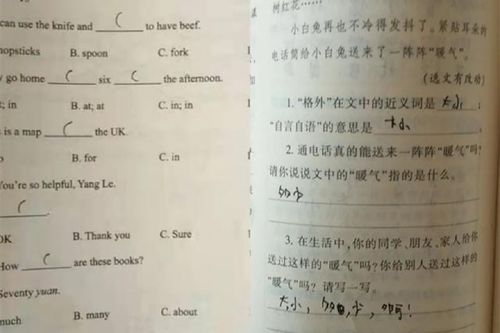 can use the knife and C to have beef.
hopsticks B. spoon C. fork
go home C six C the afternoon.
; in B. at; at C. in; in
is a map C the UK.
B. for C. in
You're so helpful, Yang Le.
C
OK B. Thank you C. Sure
How C are these books?
Seventy yuan.
much B. many C. about
树红花……
小白兔再也不冷得发抖了。紧贴耳朵的
电话筒给小白兔送来了一阵阵“暖气”。
(选文有改动)
1.“格外”在文中的近义词是 大小 ;
“自言自语”的意思是 大小
2. 通电话真的能送来一阵阵“暖气”吗?
请你说说文中的“暖气”指的是什么。
3. 在生活中,你的同学、朋友、家人给你
送过这样的“暖气”吗?你给别人送过这样的
“暖气”吗? 请写一写。
大小,